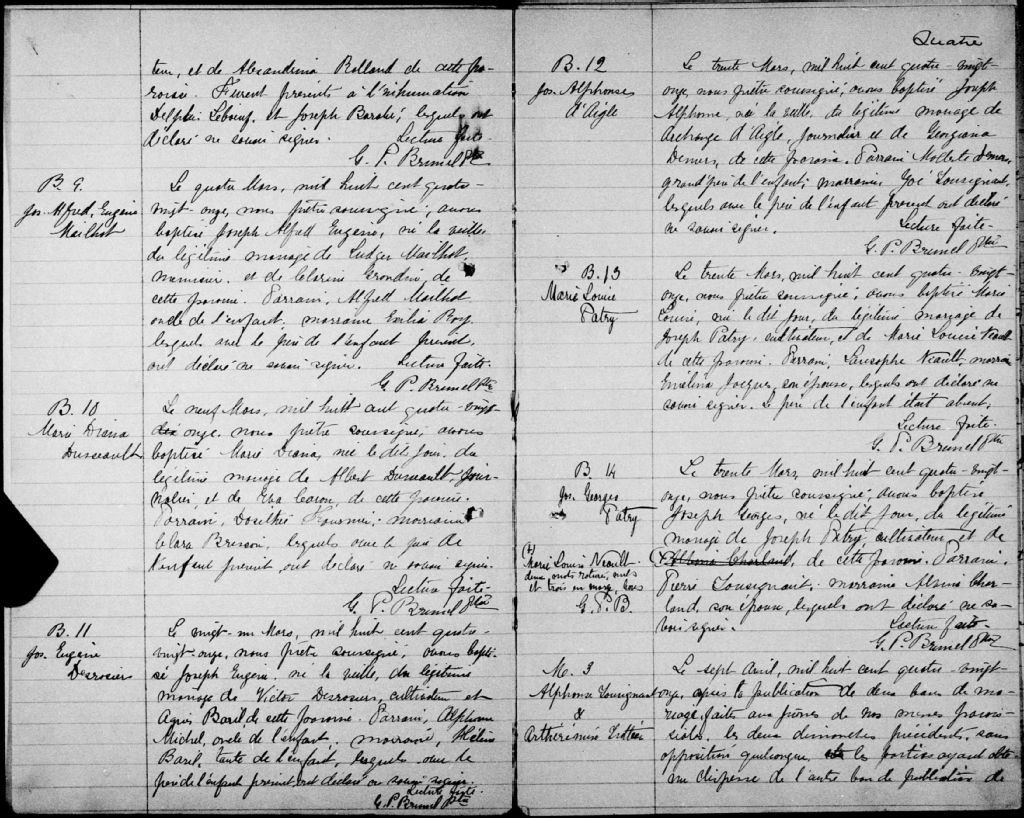 teur, et de Alexandrina Rolland de cette pa-
roisse. Furent presents à l'inhumation
Delphis Leboeuf, et Joseph Baralé; lesquels ont
déclaré ne savoir signer. Lecture faite.
G. P. Brunel Ptre
B. 9.
Jos. Alfred, Eugène
Mailhot
Le quatre Mars, mil huit cent quatre-
vingt-onze, nous prêtre soussigné, avons
baptisé Joseph Alfred Eugène, né la veille
du légitime mariage de Ludger Mailhot,
menuisier, et de Clarina Grondin, de
cette paroisse. Parrain, Alfred Mailhot,
oncle de l'enfant, marraine Emilia Roy,
lesquels avec le père de l'enfant présent,
ont déclaré ne savoir signer. Lecture faite.
G. P. Brunel Ptre
B. 10
Marie Diana
Dusseault
Le neuf Mars, mil huit cent quatre-vingt
onze, nous prêtre soussigné, avons
baptisé Marie Diana, née le dit jour, du
légitime mariage de Albert Dusseault, jour-
nalier, et de Eva Caron, de cette paroisse.
Parrain, Dorithé Fournier, marraine
Clara Brisson, lesquels avec le père de
l'enfant présent ont déclaré ne savoir signer.
Lecture faite.
G. P. Brunel Ptre
B. 11
Jos. Eugène
Desrosiers
Le vingt-un Mars, mil huit cent quatre-
vingt-onze, nous prêtre soussigné, avons bapti-
sé Joseph Eugène, né la veille, du légitime
mariage de Victor Desrosiers, cultivateur et
Agnès Baril de cette paroisse. Parrain, Alphonse
Michel, oncle de l'enfant, marraine, Hélène
Baril, tante de l'enfant, lesquels avec le
père de l'enfant présent, ont déclaré ne savoir signer.
Lecture faite.
G. P. Brunel Ptre
Quatre
B. 12
Jos. Alphonse
d'Aigle
Le trente Mars, mil huit cent quatre-vingt-
onze, nous prêtre soussigné, avons baptisé Joseph
Alphonse, né la veille, du légitime mariage de
Archange d'Aigle, journalier et de Georgiana
Demers, de cette paroisse. Parrain, Demers,
grand père de l'enfant; marraine, Zoé Tousignant,
lesquels avec le père de l'enfant présent ont déclaré
ne savoir signer. Lecture faite.
G. P. Brunel Ptre
B. 13
Marie Louise
Patry
Le trente Mars, mil huit cent quatre-vingt-
onze, nous prêtre soussigné, avons baptisé Marie
Louise, née le dit jour, du légitime mariage de
Joseph Patry, cultivateur, et de Marie Louise Neault
de cette paroisse. Parrain, Neault, marraine
Emélina Jacques, son épouse, lesquels ont déclaré ne
savoir signer. Le père de l'enfant était absent.
Lecture faite.
G. P. Brunel Ptre
B. 14
Jos. Georges
Patry
Le trente Mars, mil huit cent quatre-vingt-
onze, nous prêtre soussigné, avons baptisé
Joseph Georges, né le dit jour, du légitime
mariage de Joseph Patry, cultivateur, et de
Charland, de cette paroisse. Parrain,
Pierre Tousignant, marraine Char-
land, son épouse, lesquels ont déclaré ne sa-
voir signer. Lecture faite.
G. P. Brunel Ptre
Marie Louise Neault
deux mots rature, nuls
et trois en marge, bons
G. P. B.
M. 3
Alphonse Tousignant
&
Le sept Avril, mil huit cent quatre-vingt-
onze, après la publication de deux bans de ma-
riage, faites aux prônes de nos messes parois-
siales, les deux dimanches précédents, sans
opposition quelconque, les parties ayant obte-
nu dispense de l'autre ban de publication de